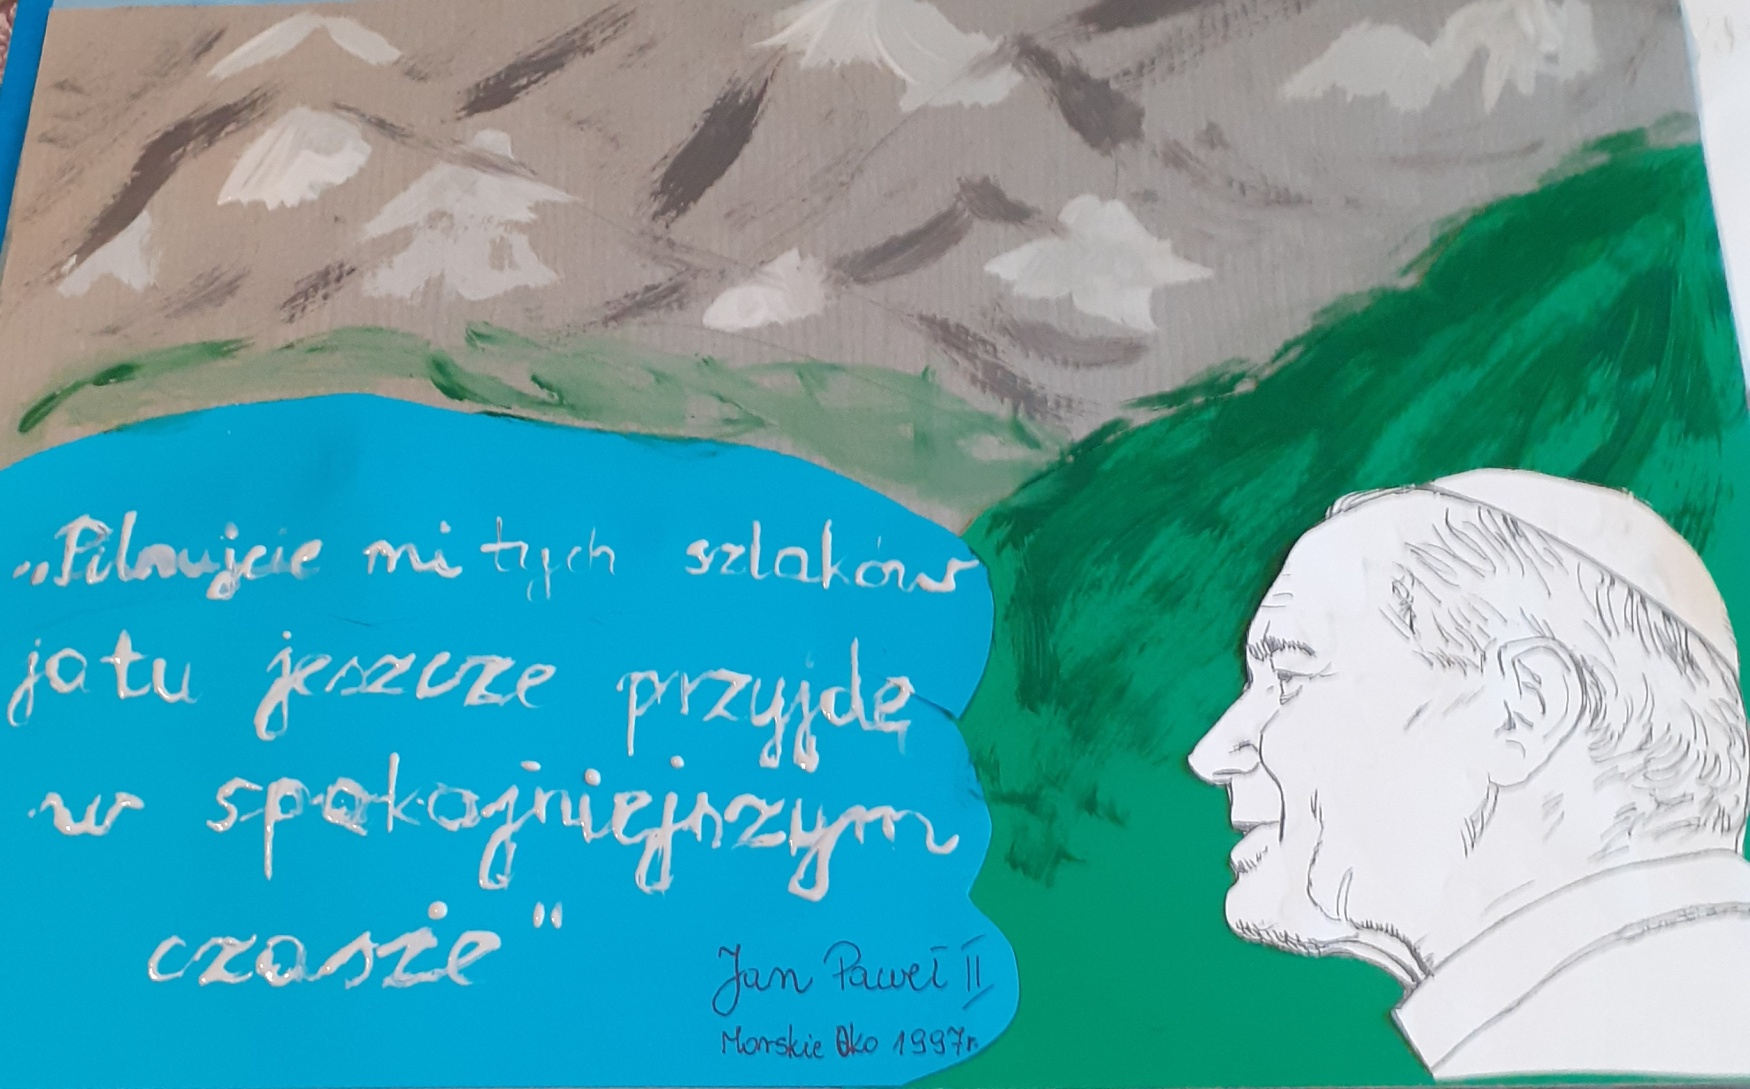 „Pilnujcie mi tych szlaków
ja tu jeszcze przyjdę
w spokojniejszym
czasie"
Jan Paweł II
Morskie Oko 1997r.